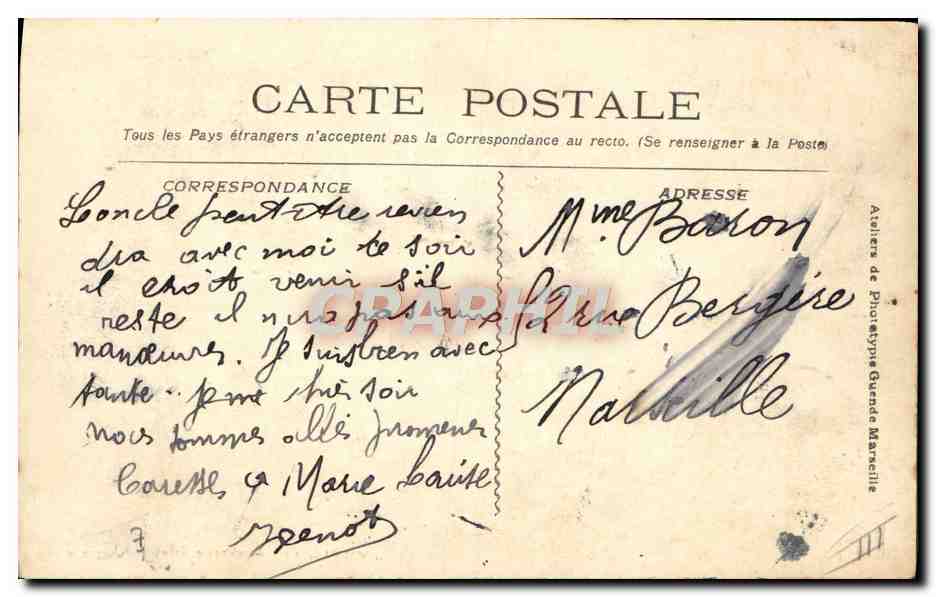 CARTE POSTALE
Tous les Pays étrangers n'acceptent pas la Correspondance au recto. (Se renseigner à la Poste)
CORRESPONDANCE
Loncle peut-être revien
dra avec moi ce soir
il croit venir s'il
reste il n'ira pas aux
manœuvres. Je suis bien avec
tante.. soir
nous sommes allés promener
Caresses Marie Louise
ADRESSE
Mme Baron
2 rue Bergère
Marseille
Ateliers de Phototypie Guende Marseille
CPAPHIL
7